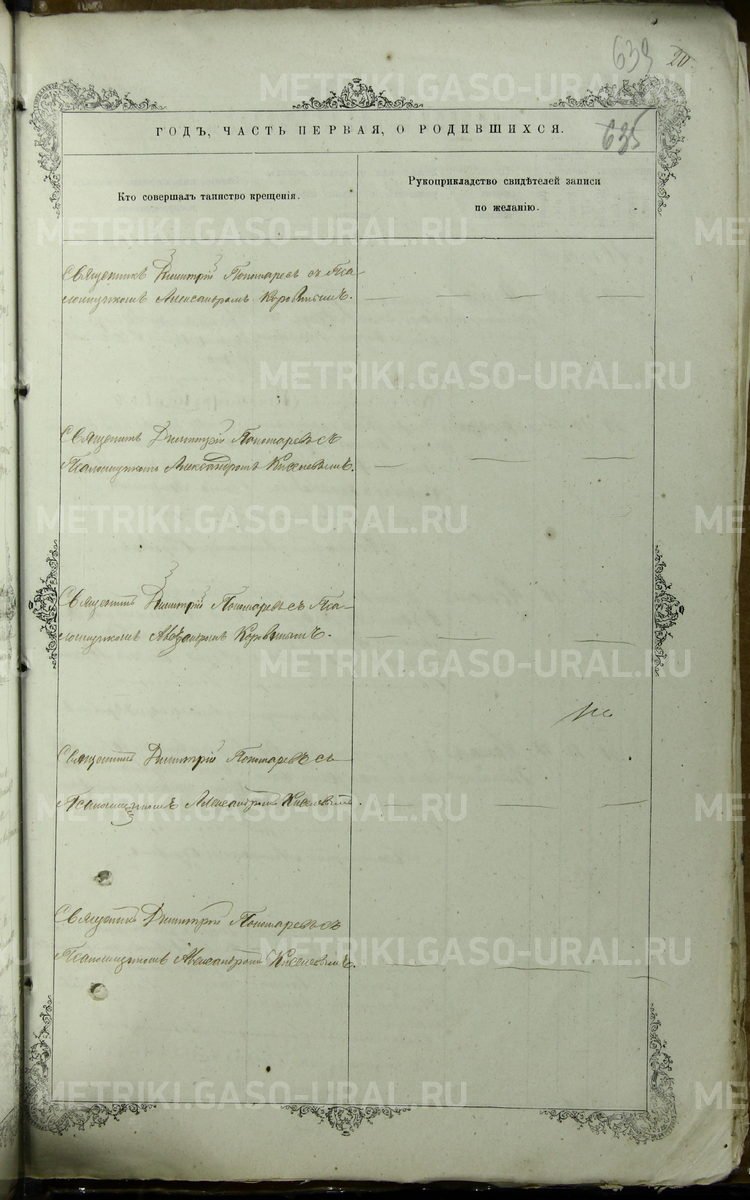 639
20
ГОДЪ, ЧАСТЬ ПЕРВАЯ, О РОДИВШИХСЯ.
635
Кто совершалъ таинство крещенія.
Рукоприкладство свидѣтелей записи
по желанію.
Священникъ Димитрій Пономаревъ съ Пса-
ломщикомъ Александромъ
Священникъ Димитрій Пономаревъ съ
Псаломщикомъ Александромъ Киселевымъ.
Священникъ Димитрій Пономаревъ съ Пса-
ломщикомъ Александромъ
Священникъ Димитрій Пономаревъ съ
Псаломщикомъ Александромъ Киселевымъ.
Священникъ Димитрій Пономаревъ съ
Псаломщикомъ Александромъ Киселевымъ.
METRIKI.GASO-URAL.RU